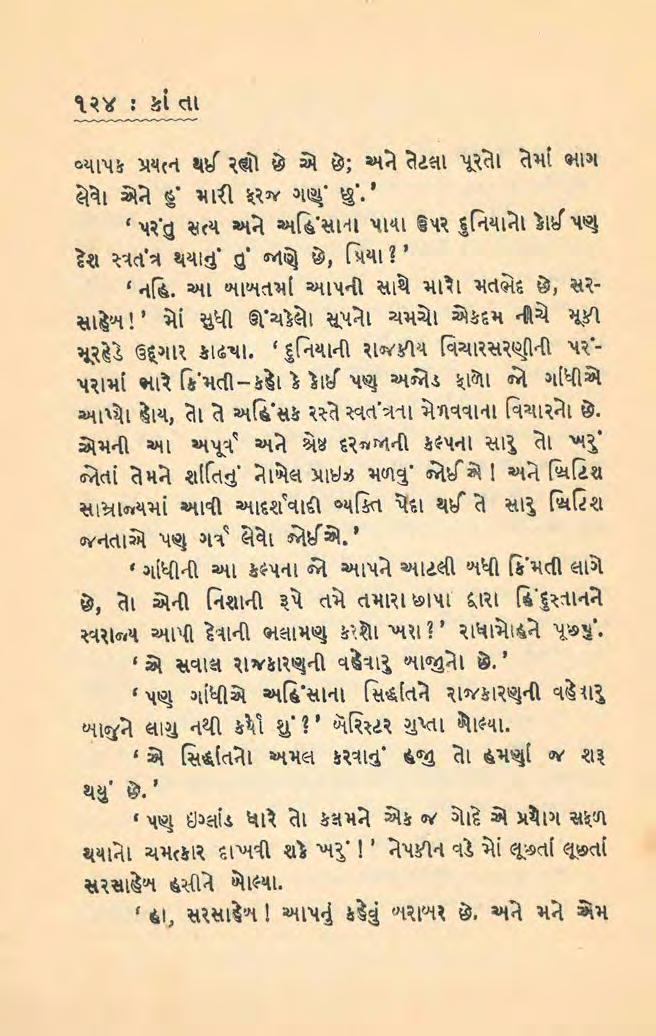 ૧૨૪ : કાં તા
વ્યાપક પ્રયત્ન થઈ રહ્યો છે એ છે; અને તેટલા પૂરતો તેમાં ભાગ
લેવો એને હું મારી ફરજ ગણું છું.’
‘ પરંતુ સત્ય અને અહિંસાના પાયા ઉપર દુનિયાનો કોઈ પણ
દેશ સ્વતંત્ર થયાનું તું જાણે છે, પ્રિયા ? ’
‘ નહિ. આ બાબતમાં આપની સાથે મારો મતભેદ છે, સર-
સાહેબ ! ’ મોં સુધી ઊંચકેલો સૂપનો ચમચો એકદમ નીચે મૂકી
મૂરહેડે ઉદ્દગાર કાઢ્યા. ‘ દુનિયાની રાજકીય વિચારસરણીની પરં-
પરામાં ભારે કિંમતી–કહો કે કોઈ પણ અજોડ ફાળો જો ગાંધીએ
આપ્યો હોય, તો તે અહિંસક રસ્તે સ્વતંત્રતા મેળવવાના વિચારનો છે.
એમની આ અપૂર્વ અને શ્રેષ્ઠ દરજ્જાની કલ્પના સારુ તો ખરું
જોતાં તેમને શાંતિનું નોબેલ પ્રાઇઝ મળવું જોઈએ ! અને બ્રિટિશ
સામ્રાજ્યમાં આવી આદર્શવાદી વ્યક્તિ પેદા થઈ તે સારુ બ્રિટિશ
જનતાએ પણ ગર્વ લેવો જોઈએ.’
‘ ગાંધીની આ કલ્પના જો આપને આટલી બધી કિંમતી લાગે
છે, તો એની નિશાની રૂપે તમે તમારા છાપા દ્વારા હિંદુસ્તાનને
સ્વરાજ્ય આપી દેવાની ભલામણ કરશો ખરા ? ’ રાધામોહને પૂછ્યું.
‘ એ સવાલ રાજકારણની વહેવારુ બાજુનો છે.’
‘ પણ ગાંધીએ અહિંસાના સિદ્ધાંતને રાજકારણની વહેવારુ
બાજુને લાગુ નથી કર્યો શું ? ’ બૅરિસ્ટર ગુપ્તા બોલ્યા.
‘ એ સિદ્ધાંતનો અમલ કરવાનું હજી તો હમણાં જ શરૂ
થયું છે.’
‘ પણ ઇંગ્લાંડ ધારે તો કલમને એક જ ગોદે એ પ્રયોગ સફળ
થયાનો ચમત્કાર દાખવી શકે ખરું ! ’ નેપકીન વડે મોં લૂછતાં લૂછતાં
સરસાહેબ હસીને બોલ્યા.
‘ હા, સરસાહેબ ! આપનું કહેવું બરાબર છે. અને મને એમ